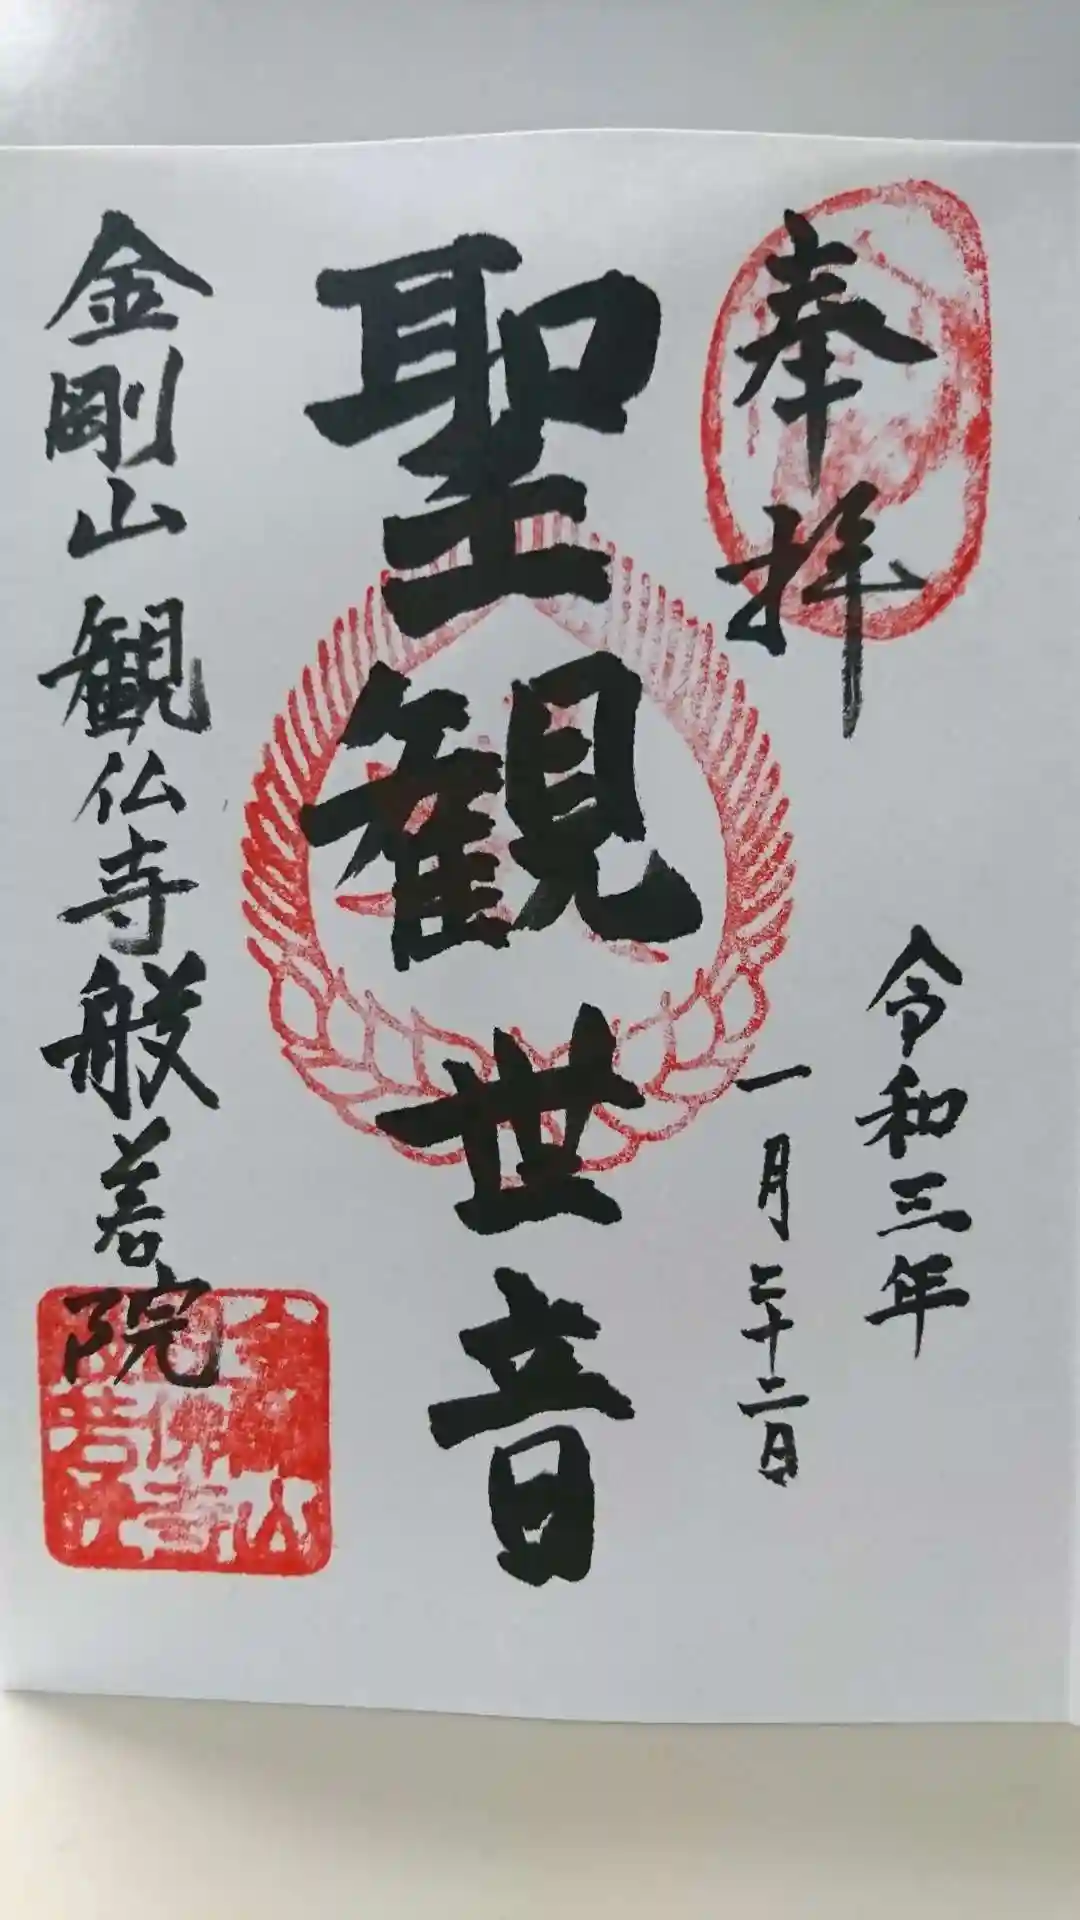 奉拝
令和三年
一月二十二日
聖観世音
金剛山観仏寺般若院
金剛山
観佛寺
般若院